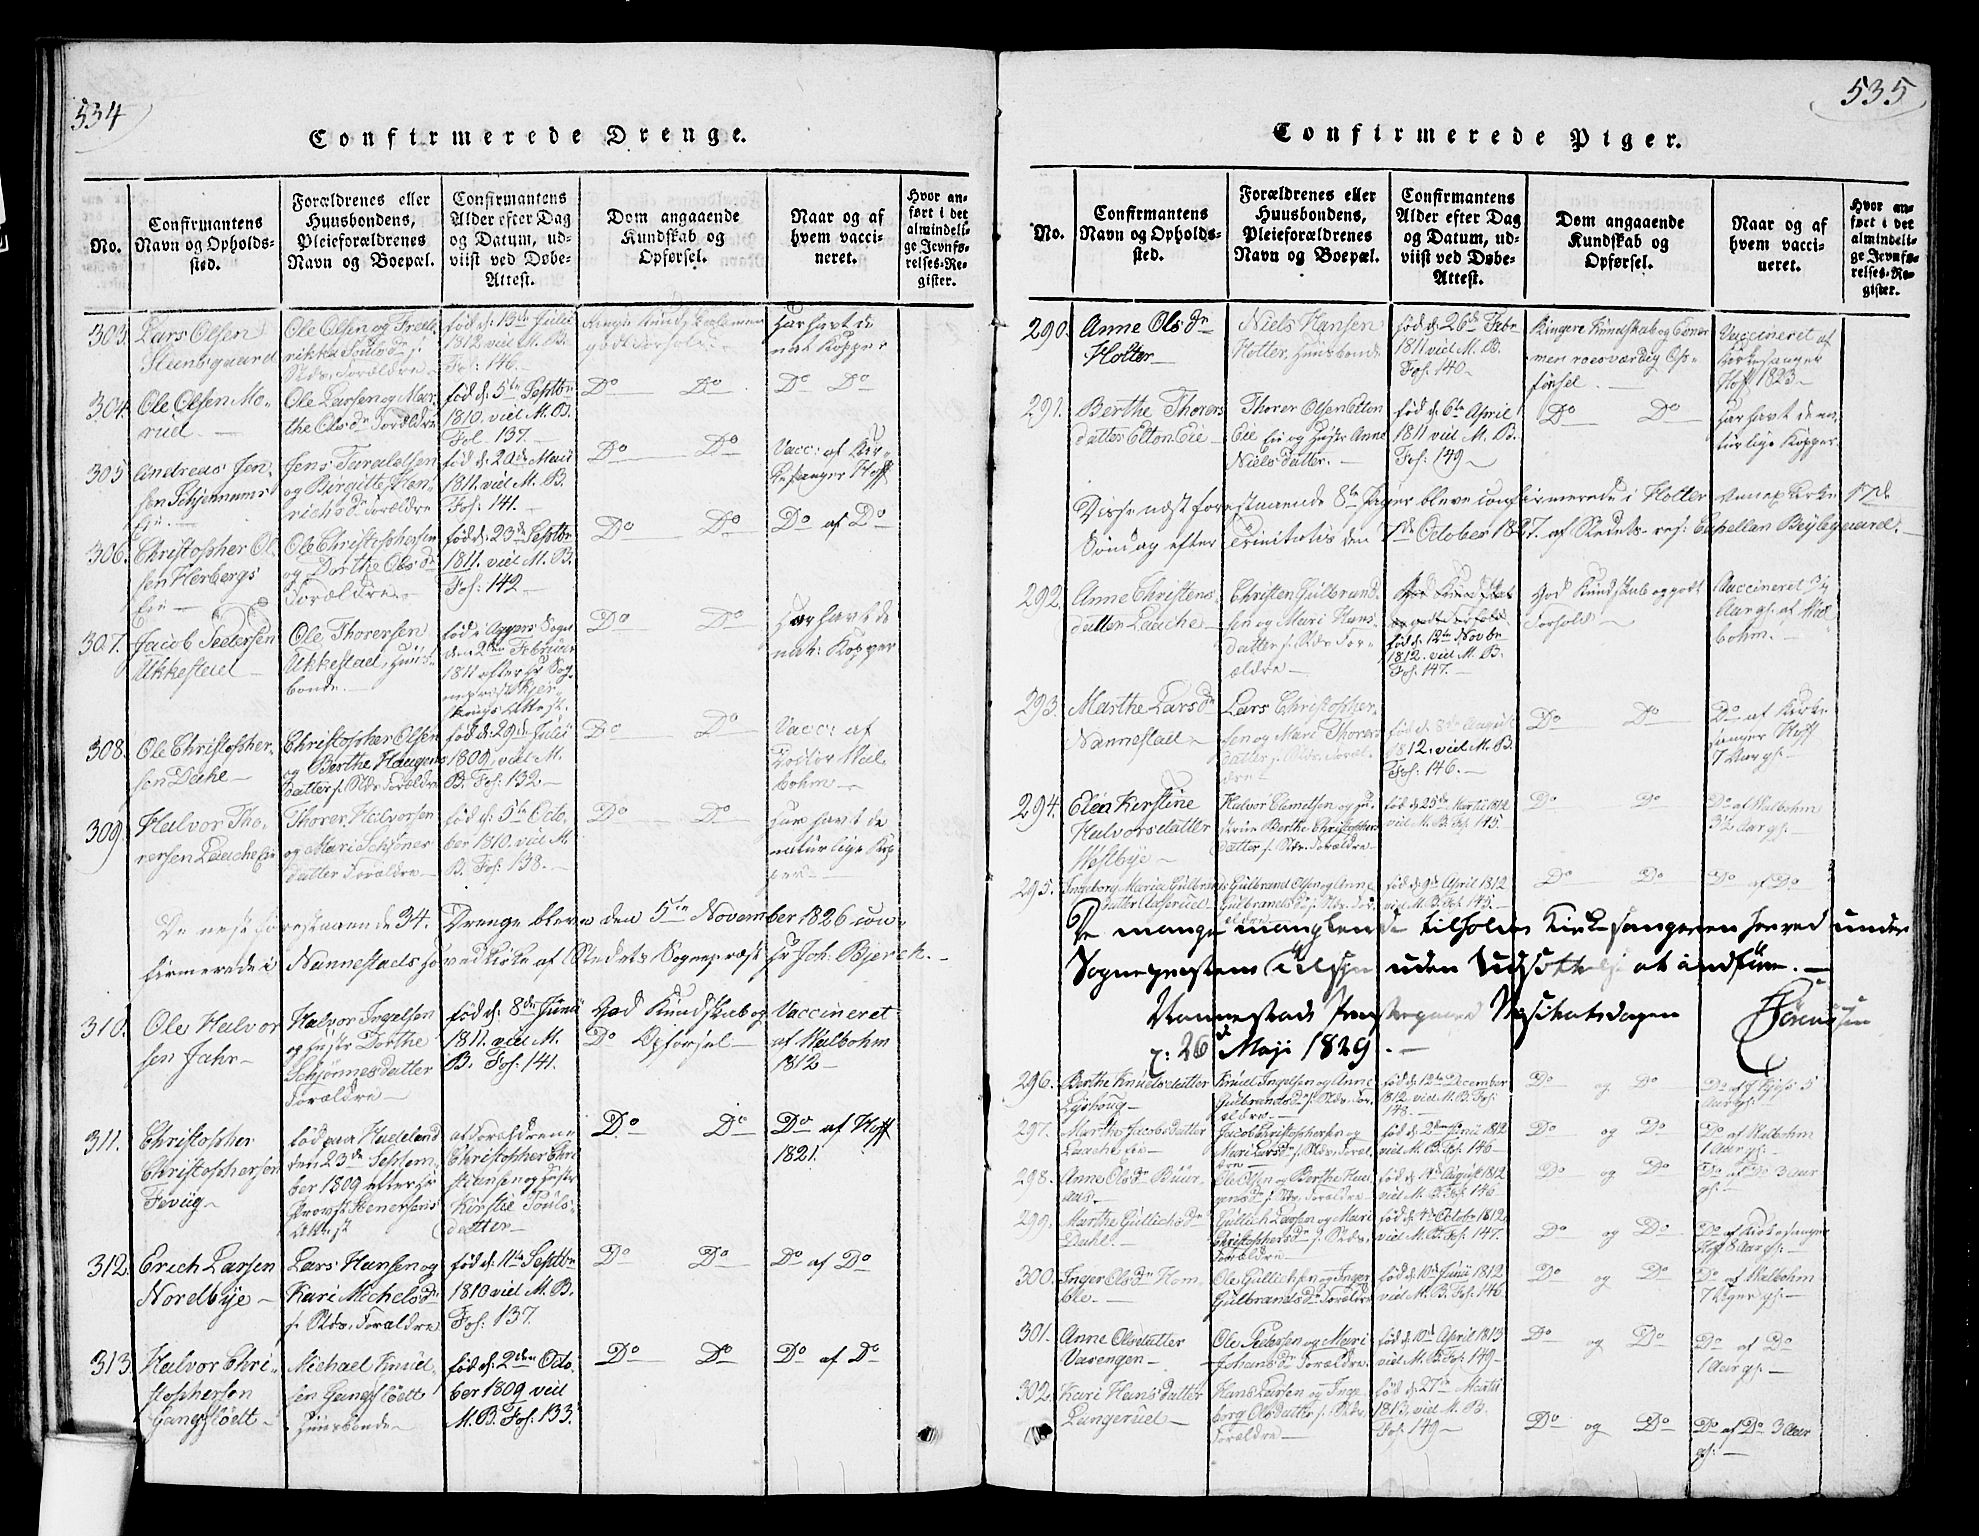 534
Confirmerede Drenge.
No.
Confirmantens
Navn og Opholds-
sted.
Forældrenes eller
Huusbondens,
Pleieforældrenes
Navn og Boepæl.
Confirmantens
Alder efter Dag
og Datum, ud-
viist ved Døbe-
Attest.
Dom angaaende
Kundskab og
Opførsel.
Naar og af
hvem vacci-
neret.
Hvor an-
ført i det
almindeli-
ge Jevnfø-
relses-Re-
gister.
303. Lars Olsen
Steensgaard
Ole Olsen og Frede
rikke
Forældre
fød d: 13de Julii
1812 vid M. B.
Fol: 146.
Har havt de
nat. Kopper
304. Ole Olsen Mo-
rud.
Ole Larsen og Mar-
the Olsdr Forældre
fød d: 5te Septbr
1810. vid M. B.
Fol. 137.
Do Do
Do Do
305 Andreas Jen-
sen Schjennums
Eie.
Jens Taraldsen
og Birgitte Hen-
richsdr Forældre
fød d: 20de Maii
1811. vid M. B.
Fol: 141.
Do Do
Vacc: af Kir-
kesanger Hoff
306. Christopher Ol-
sen Herbergs
Eie
Ole Christophersen
og Dorthe Olsdr
Forældre.
fød d: 23de Septbr
1811. vid M. B.
Fol: 142
Do Do
Do af Do
307. Jacob Pedersen
Ukkestad
Ole Thorersen
Ukkestad, Huus-
bonde.
fød i Aggers Sogn
den 2den Februar
1811 efter Hr Sog-
nepræst
Attest.
Do Do
Har havt de
nat: Kopper
308. Ole Christopher-
sen Dahe
Christopher Olsen
og Berthe Haagens
datter s. Stds. Forældre
fød d: 29de Julii
1809, vid M.
B. Fol: 132.
Do Do
Vacc: af
Doctor Mal-
bohm
309. Halvor Tho-
rersen Laache Eie
Thorer Halvorsen
og Mari Schjønes
datter Forældre
fød d: 5te Octo-
ber 1810. vid M.
B. Fol: 138.
Do Do
Har havt de
naturlige Kop
per
De næst forestaaende 34. Drenge bleve den 5te November 1826 con-
firmerede i Nannestads Hovedkirke af Stedets Sognepræst Hr Joh: Bjerck.
310. Ole Halvor
sen Jahr
Halvor Ingelsen
og Hustr Dorthe
Schjønnesdatter
Forældre
fød d: 8de Junii
1811. vid M.
B. Fol: 141.
God Kundskab og
Do Opførsel
Vaccineret
af Malbohm
1812
311. Christopher
Christophersen
Tevüg
fød paa Hadeland
den 23de Septem-
ber 1809 efter Hr
Provst Stenersens
Attest
af Forældrene
Christopher Chri-
stiansen og Hustr
Kirstie Pouls-
datter
Do Do
Do af Hoff
1821.
312. Erich Larsen
Nordbye
Lars Hansen og
Kari Michelsdr
s. Stds. Forældre
fød d: 11te Septbr
1810 vid M. B.
Fol: 137.
Do Do
Do af Do
313. Halvor Chri-
stophersen
Gangfløedt
Michael Knud-
sen Gangfløedt
Huusbonde
fød d: 2den Octo-
ber 1809 vid
M. B. Fol: 133.
Do Do
Do af Do
535
Confirmerede Piger.
No.
Confirmantens
Navn og Opholds-
sted.
Forældrenes eller
Huusbondens,
Pleieforældrenes
Navn og Boepæl.
Confirmantens
Alder efter Dag
og Datum, ud-
viist ved Døbe-
Attest.
Dom angaaende
Kundskab og
Opførsel.
Naar og af
hvem vacci-
neret.
Hvor an-
ført i det
almindeli-
ge Jevnfø-
relses-Re-
gister.
290. Anne Olsdr
Holter
Niels Hansen
Holter, Huusbonde
fød d: 26de Febr
1811 vid M. B.
Fol: 140
Ringere Kundskab og
mer roesværdig Op-
førsel.
Vaccineret af
Kirkesanger
Hoff 1823
291. Berthe Thorers
datter Elton Eie
Thorer Olsen Elton
Eie og Hustr Anne
Niels datter.
fød d: 6te April
1811 vid M. B.
Fol: 149
Do Do
Har havt de na-
turlige Kopper
Disse næst forestaaende 8te Piger bleve confirmerede i Holter Annex Kirke 17de
Søndag efter Trinitatis den 7de October 1827. af Stedets res: Capellan Beylegaard.
292. Anne Christens
datter Laache
Christen Gulbrand
sen og Mari Hans
datter s. Stds. For-
ældre
fød d: 12te Novbr
1812. vid M. B.
Fol: 147.
God Kundskab og godt
Forhold
Vaccineret 3½
Aar gl. af Mal-
bohm.
293. Marthe Larsdr
Nannestad
Lars Christopher-
sen og Mari Thorers
datter s. Stds. Foræl-
dre
fød d: 8de August
1812. vid M. B.
Fol: 146.
Do Do
Do af Kirke
sanger Hoff
7 Aar gl.
294. Elen Kerstine
Halvorsdatter
Westbye
Halvor Clemetsen og Hu-
struе Berthe Christophers
datter s. Stds. Forældre
fød d: 25de Martii 1812
vid M. B. Fol: 145.
Do Do
Do af Malbohm
3½ Aar gl.
295. Ingeborg Maria Gulbrands
datter
Gulbrand Olsen og Anne
Gulbrandsdr s. Stds. For
ældre
fød d: 9de April 1812
vid M. B. Fol: 145.
Do Do
Do af Do
De mange manglende tilholdes Kirkesangeren herved under
Sognepræstens Tilsyn uden Udsættelse at indføre.
Nannestads Præstegaard Visitatsdagen
d: 26de Maji 1829.
Sørenssen
296. Berthe Knudsdatter
Lyshoug
Knud Ingelsen og Anne
Gulbrandsdr s. Stds. For
ældre
fød d: 12te December
1812 vid M. B. Fol:
148.
Do og Do
5
Aar gl.
297. Marthe Jacobsdatter
Laache Eie
Jacob Christophersen og
Mari Larsdr s. Stds. Foræl
dre
fød d: 2den Junii 1812
vid M. B. Fol: 146
Do og Do
Do af Malbohm
1 Aar gl.
298. Anne Olsdr Buur-
aas.
Ole Olsen og Berthe Han-
sdr s. Stds. Forældre
fød d: 1ste August 1812
vid M. B. Fol: 146
Do og Do
Do af Do 3 Aar
gl.
299. Marthe Gullichsdr
Dahl.
Gullich Larsen og Mari
Christophersdr s. Stds.
Forældre
fød d: 4de Octobr 1812
vid M. B. Fol: 147.
Do og Do
Do af Kirkesanger
Hoff 8 Aar gl.
300. Inger Olsdr Hem-
ble.
Ole Gullichsen og Inger
Gulbrandsdr Forældre
fød d: 10de Junii 1812
vid M. B. Fol: 146
Do og Do
Do af Malbohm
7 Uger gl.
301. Anne Olsdatter
Varengen
Ole Pedersen og Mari
Johansdr Forældre
fød d: 10de April 1813
vid M. B. Fol: 149
Do og Do
Do af Do
1 Aar gl.
302. Kari Hansdatter
Langerud
Hans Larsen og Inge-
borg Olsdatter s. Stds.
Forældre
fød d: 27de Martii
1813. vid M. B.
Fol: 149
Do og Do
Do af Do 3 Aar
gl.